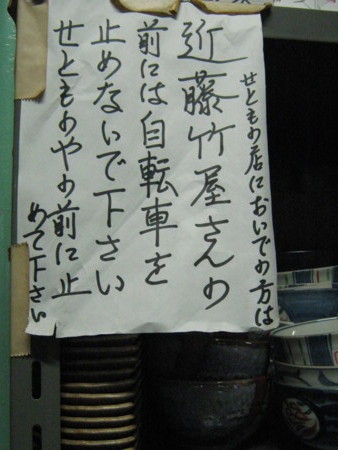 せともの店においでの方は
近藤竹屋さんの
前には自転車を
止めないで下さい
せとものやの前に止
めて下さい